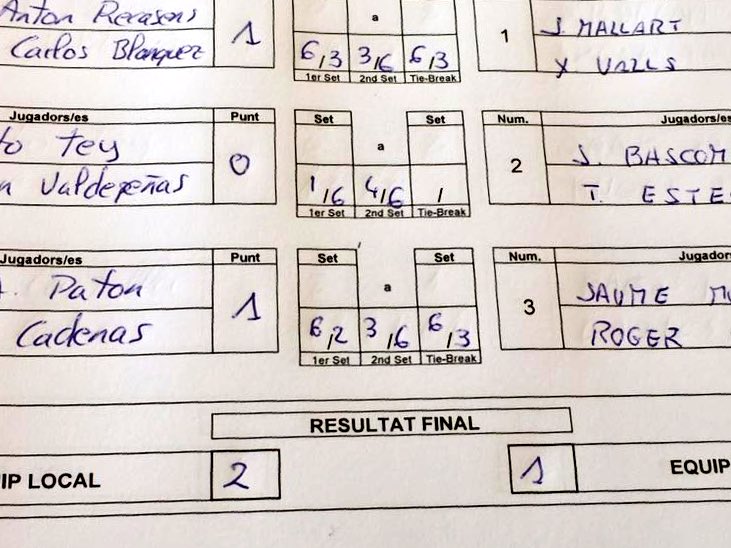 Anton Recasens
Carlos Blanquez 1 6/3 a 3/6 6/3 1
1er Set 2nd Set Tie-Break
J. MALLART
X. VALLS
Jugadors/es Punt Set a Set Num. Jugadors/es
Tey 0 2 S. BASCOM
Valdepeñas 1/6 4/6 / T. ESTE
1er Set 2nd Set Tie-Break
Jugadors/es Punt Set a Set Num. Jugador
Paton 1 3 JAUME
Cadenas 6/2 3/6 6/3 ROGER
1er Set 2nd Set Tie-Break
RESULTAT FINAL
IP LOCAL 2 1 EQUIP